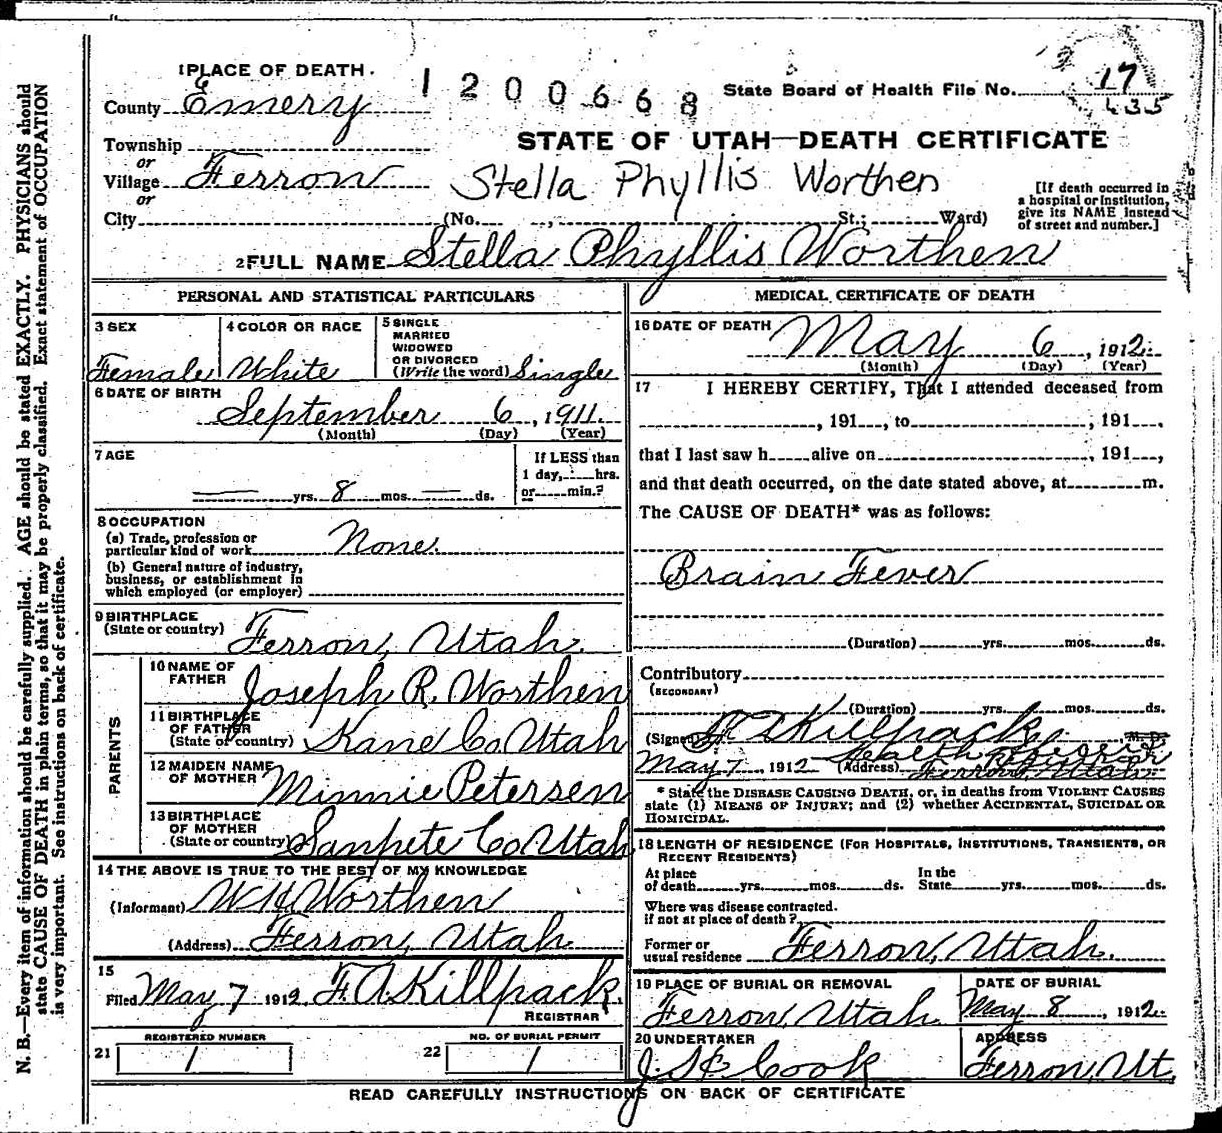 1 PLACE OF DEATH.
1 2 0 0 6 6 8
State Board of Health File No. 17
435
County Emery
STATE OF UTAH—DEATH CERTIFICATE
Township
or
Village Ferron
or
Stella Phyllis Worthen
City (No. , St.; Ward)
[If death occurred in
a hospital or institution,
give its NAME instead
of street and number.]
2 FULL NAME Stella Phyllis Worthen
PERSONAL AND STATISTICAL PARTICULARS
3 SEX
Female
4 COLOR OR RACE
White
5 SINGLE
MARRIED
WIDOWED
OR DIVORCED
(Write the word) Single
6 DATE OF BIRTH
September 6, 1911.
(Month) (Day) (Year)
7 AGE
— yrs. 8 mos. — ds.
If LESS than
1 day, hrs.
or min.?
8 OCCUPATION
(a) Trade, profession or
particular kind of work None.
(b) General nature of industry,
business, or establishment in
which employed (or employer)
9 BIRTHPLACE
(State or country) Ferron, Utah.
PARENTS
10 NAME OF
FATHER Joseph R. Worthen
11 BIRTHPLACE
OF FATHER
(State or country) Kane Co Utah
12 MAIDEN NAME
OF MOTHER Minnie Petersen
13 BIRTHPLACE
OF MOTHER
(State or country) Sanpete Co Utah
14 THE ABOVE IS TRUE TO THE BEST OF MY KNOWLEDGE
(Informant) W H Worthen
(Address) Ferron, Utah
15
Filed May 7 1912 F. A. Killpack.
REGISTRAR
REGISTERED NUMBER
21 1
NO. OF BURIAL PERMIT
22 1
MEDICAL CERTIFICATE OF DEATH
16 DATE OF DEATH
May 6, 1912.
(Month) (Day) (Year)
17 I HEREBY CERTIFY, That I attended deceased from
, 191 , to , 191 .
that I last saw h alive on , 191 ,
and that death occurred, on the date stated above, at m.
The CAUSE OF DEATH* was as follows:
Brain Fever
(Duration) yrs. mos. ds.
Contributory
(SECONDARY)
(Duration) yrs. mos. ds.
(Signed) Killpack
Health
May 7, 1912 (Address) Ferron, Utah.
* State the DISEASE CAUSING DEATH, or, in deaths from VIOLENT CAUSES
state (1) MEANS OF INJURY; and (2) whether ACCIDENTAL, SUICIDAL OR
HOMICIDAL.
18 LENGTH OF RESIDENCE (FOR HOSPITALS, INSTITUTIONS, TRANSIENTS, OR
RECENT RESIDENTS)
At place
of death yrs. mos. ds.
In the
State yrs. mos. ds.
Where was disease contracted.
if not at place of death?
Former or
usual residence Ferron, Utah.
19 PLACE OF BURIAL OR REMOVAL
Ferron, Utah
DATE OF BURIAL
May 8, 1912.
20 UNDERTAKER
Cook
ADDRESS
Ferron, Ut.
READ CAREFULLY INSTRUCTIONS ON BACK OF CERTIFICATE
N. B.—Every item of information should be carefully supplied. AGE should be stated EXACTLY. PHYSICIANS should
state CAUSE OF DEATH in plain terms, so that it may be properly classified. Exact statement of OCCUPATION
is very important. See instructions on back of certificate.